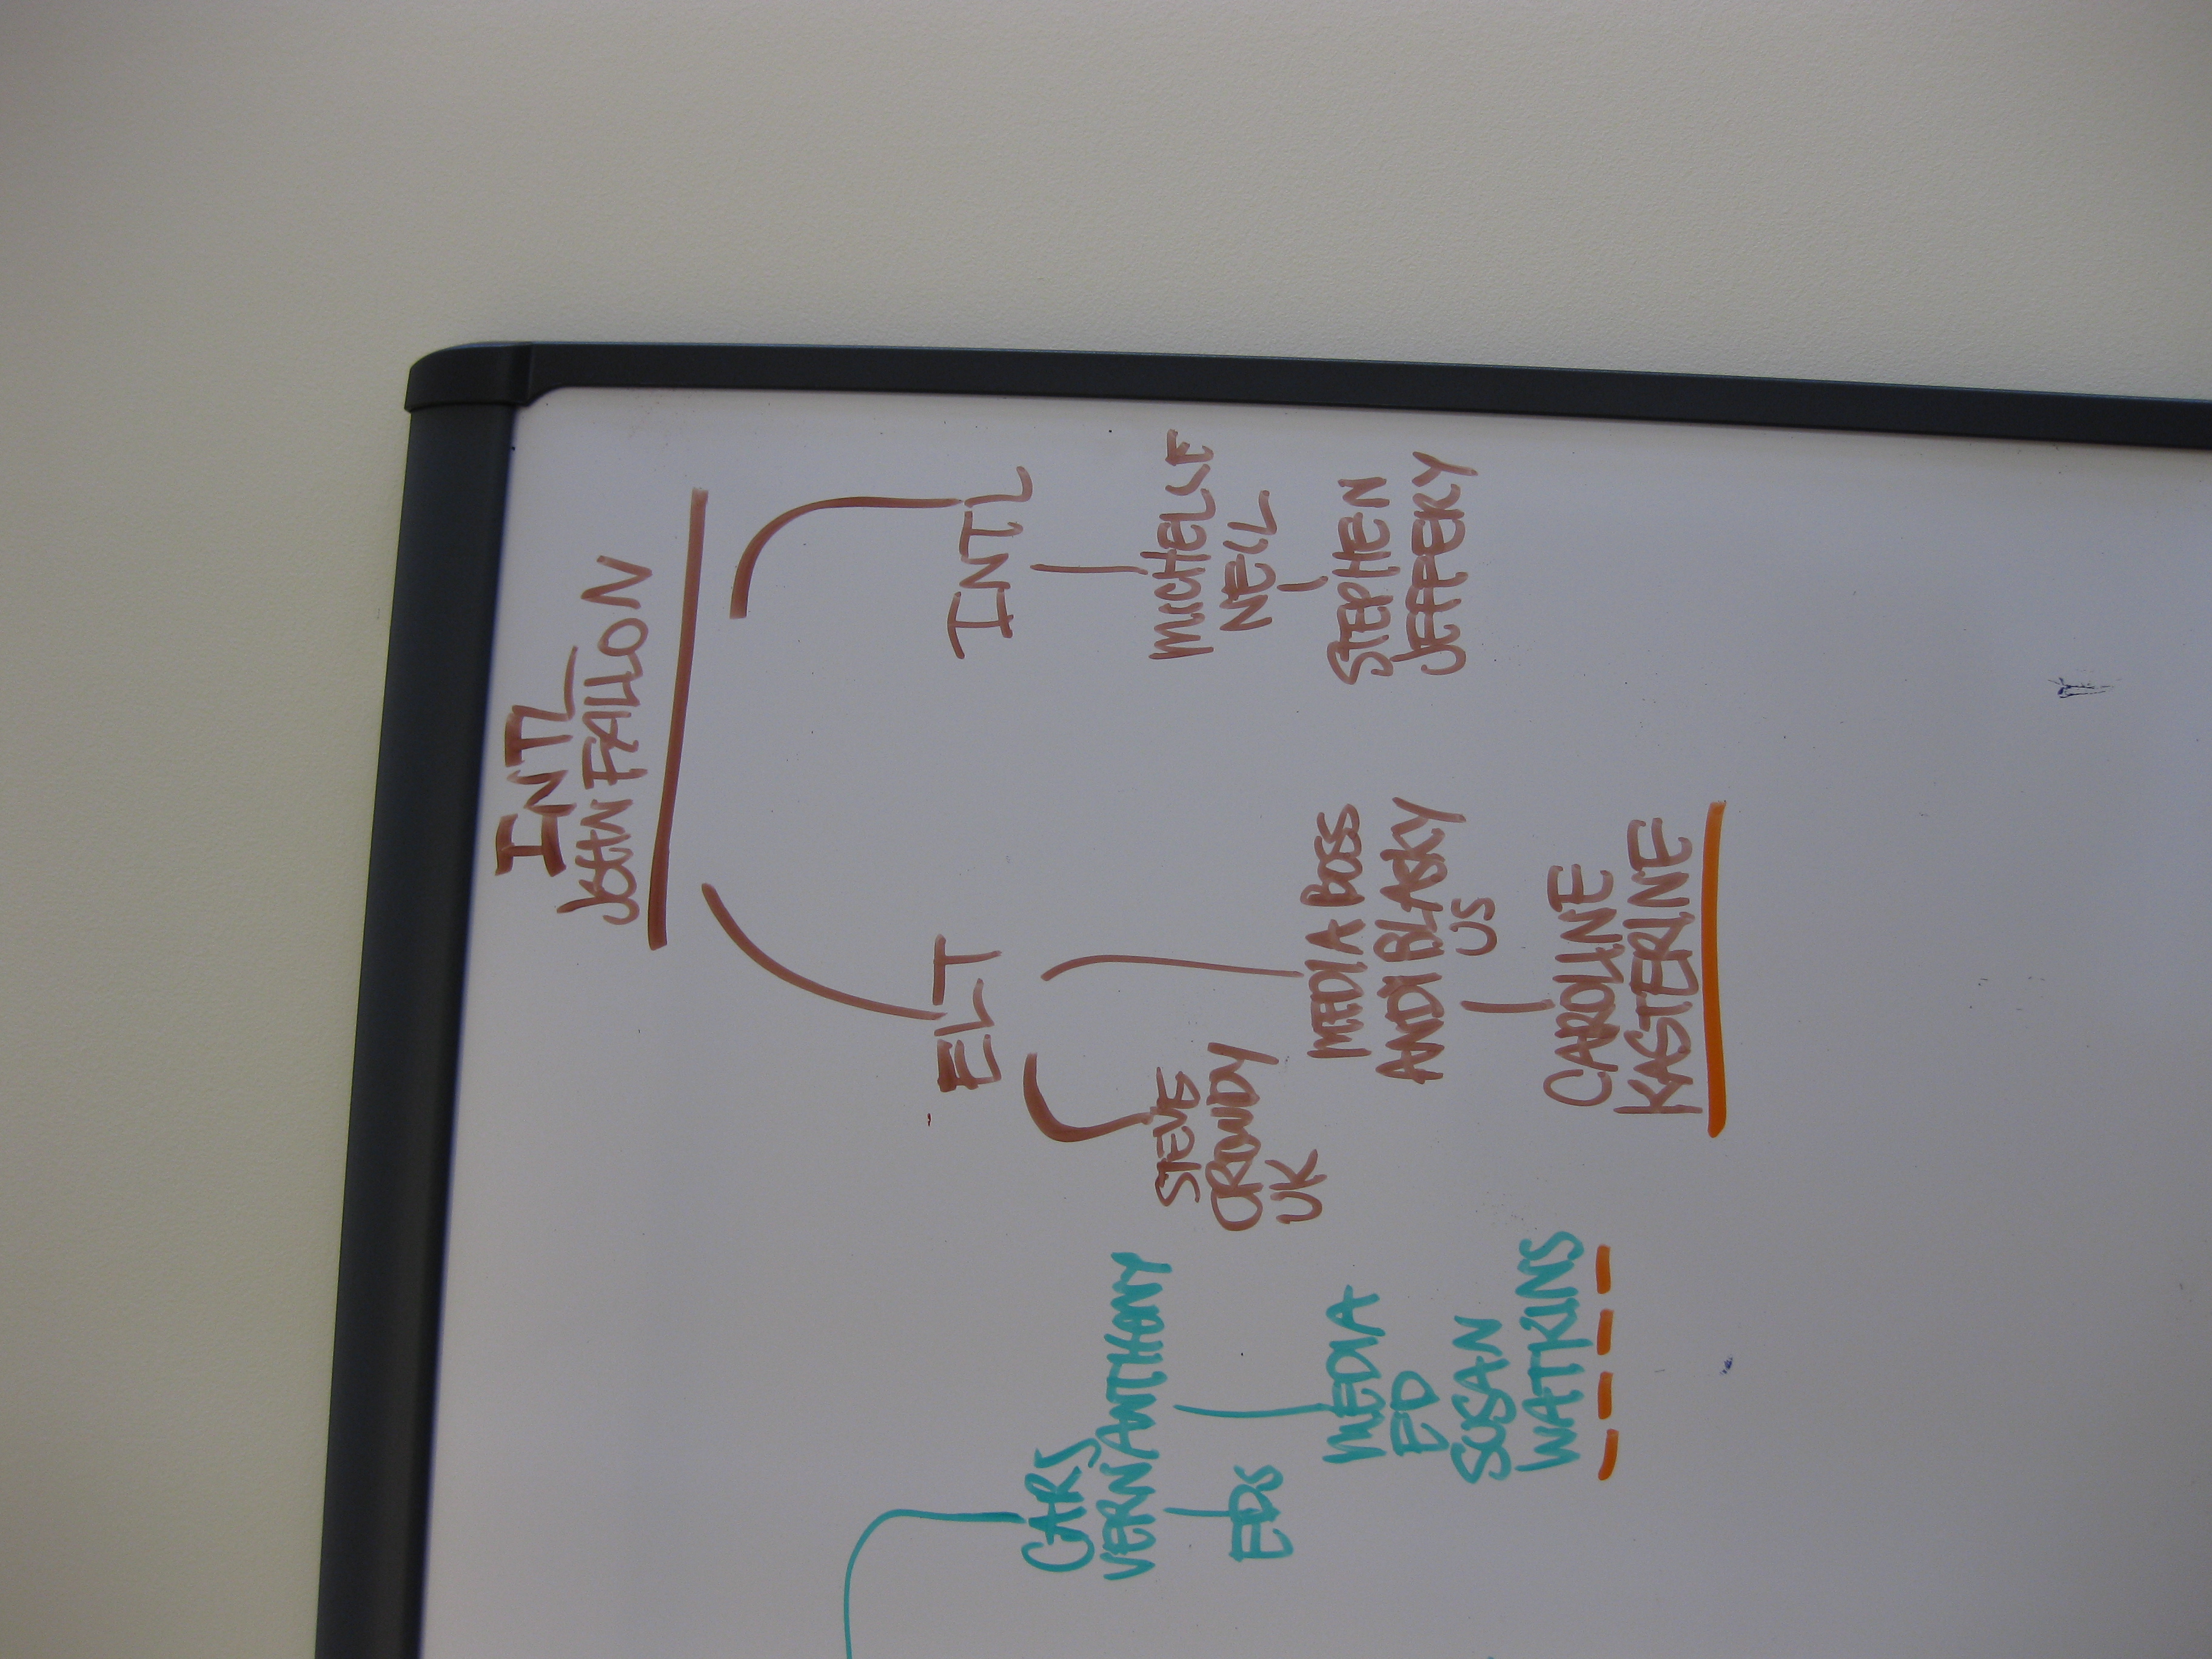 INTL
JOHN FALLON
ELT
INTL
STEVE
GRUNDY
UK
MEDIA BOSS
ANDI BLASKY
US
CAROLINE
KASTERINE
MICHELLE
NELL
STEPHEN
JEFFERY
VERN ANTHONY
EDS
MEDIA
ED
SUSAN
WATKINS